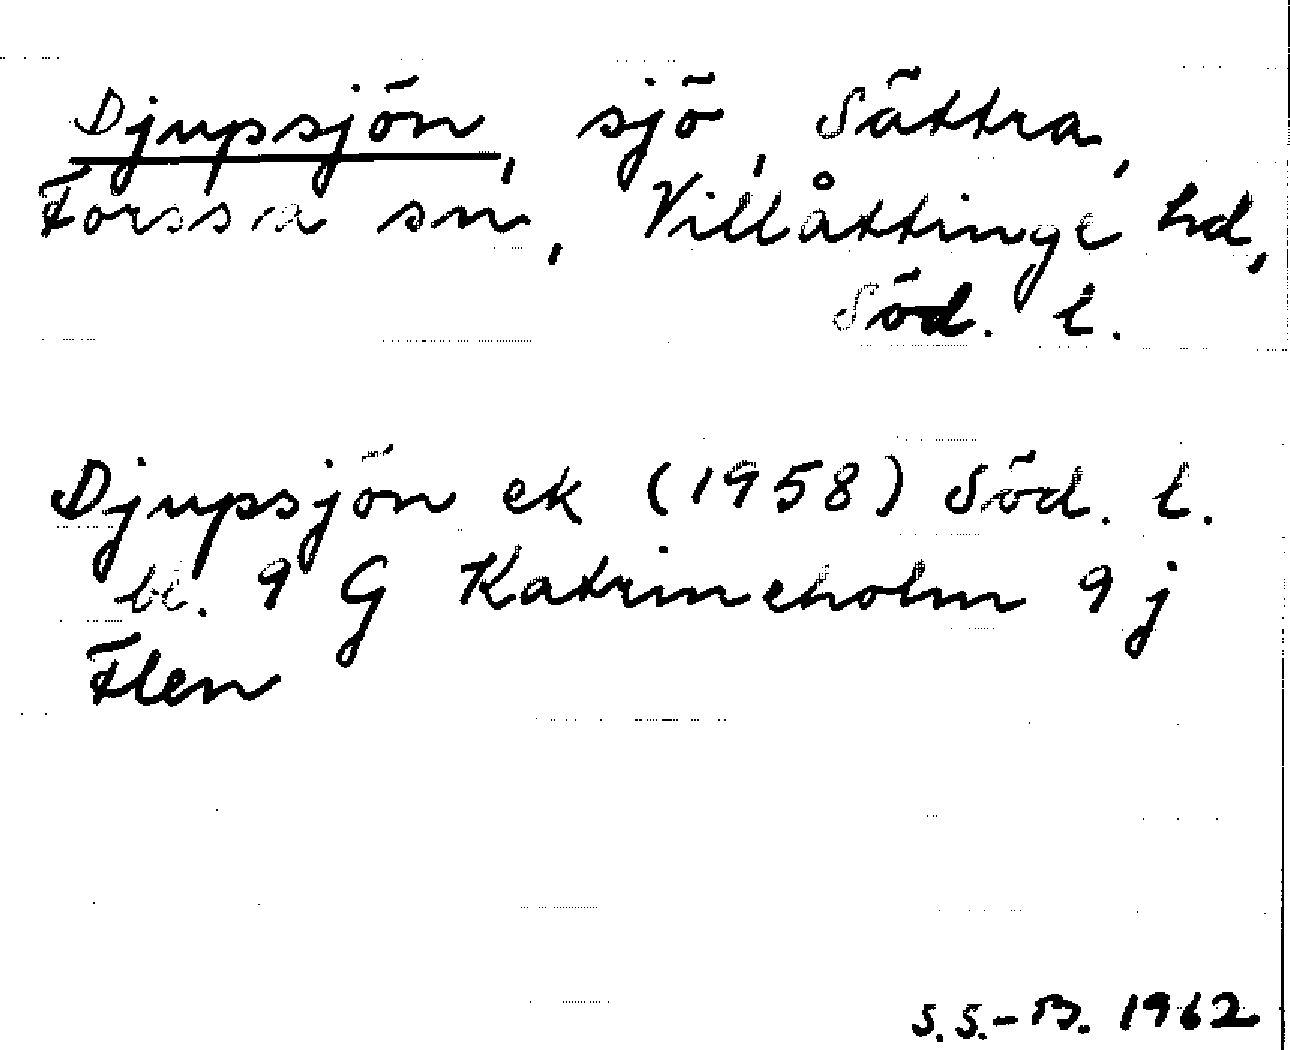 Djupsjön, sjö, Sättra,
Forssa sn, Villåttinge hd,
Söd. l.
Djupsjön ek (1958) Söd. l.
bl. 9 G Katrineholm 9 j
Flen
S. S.-B. 1962